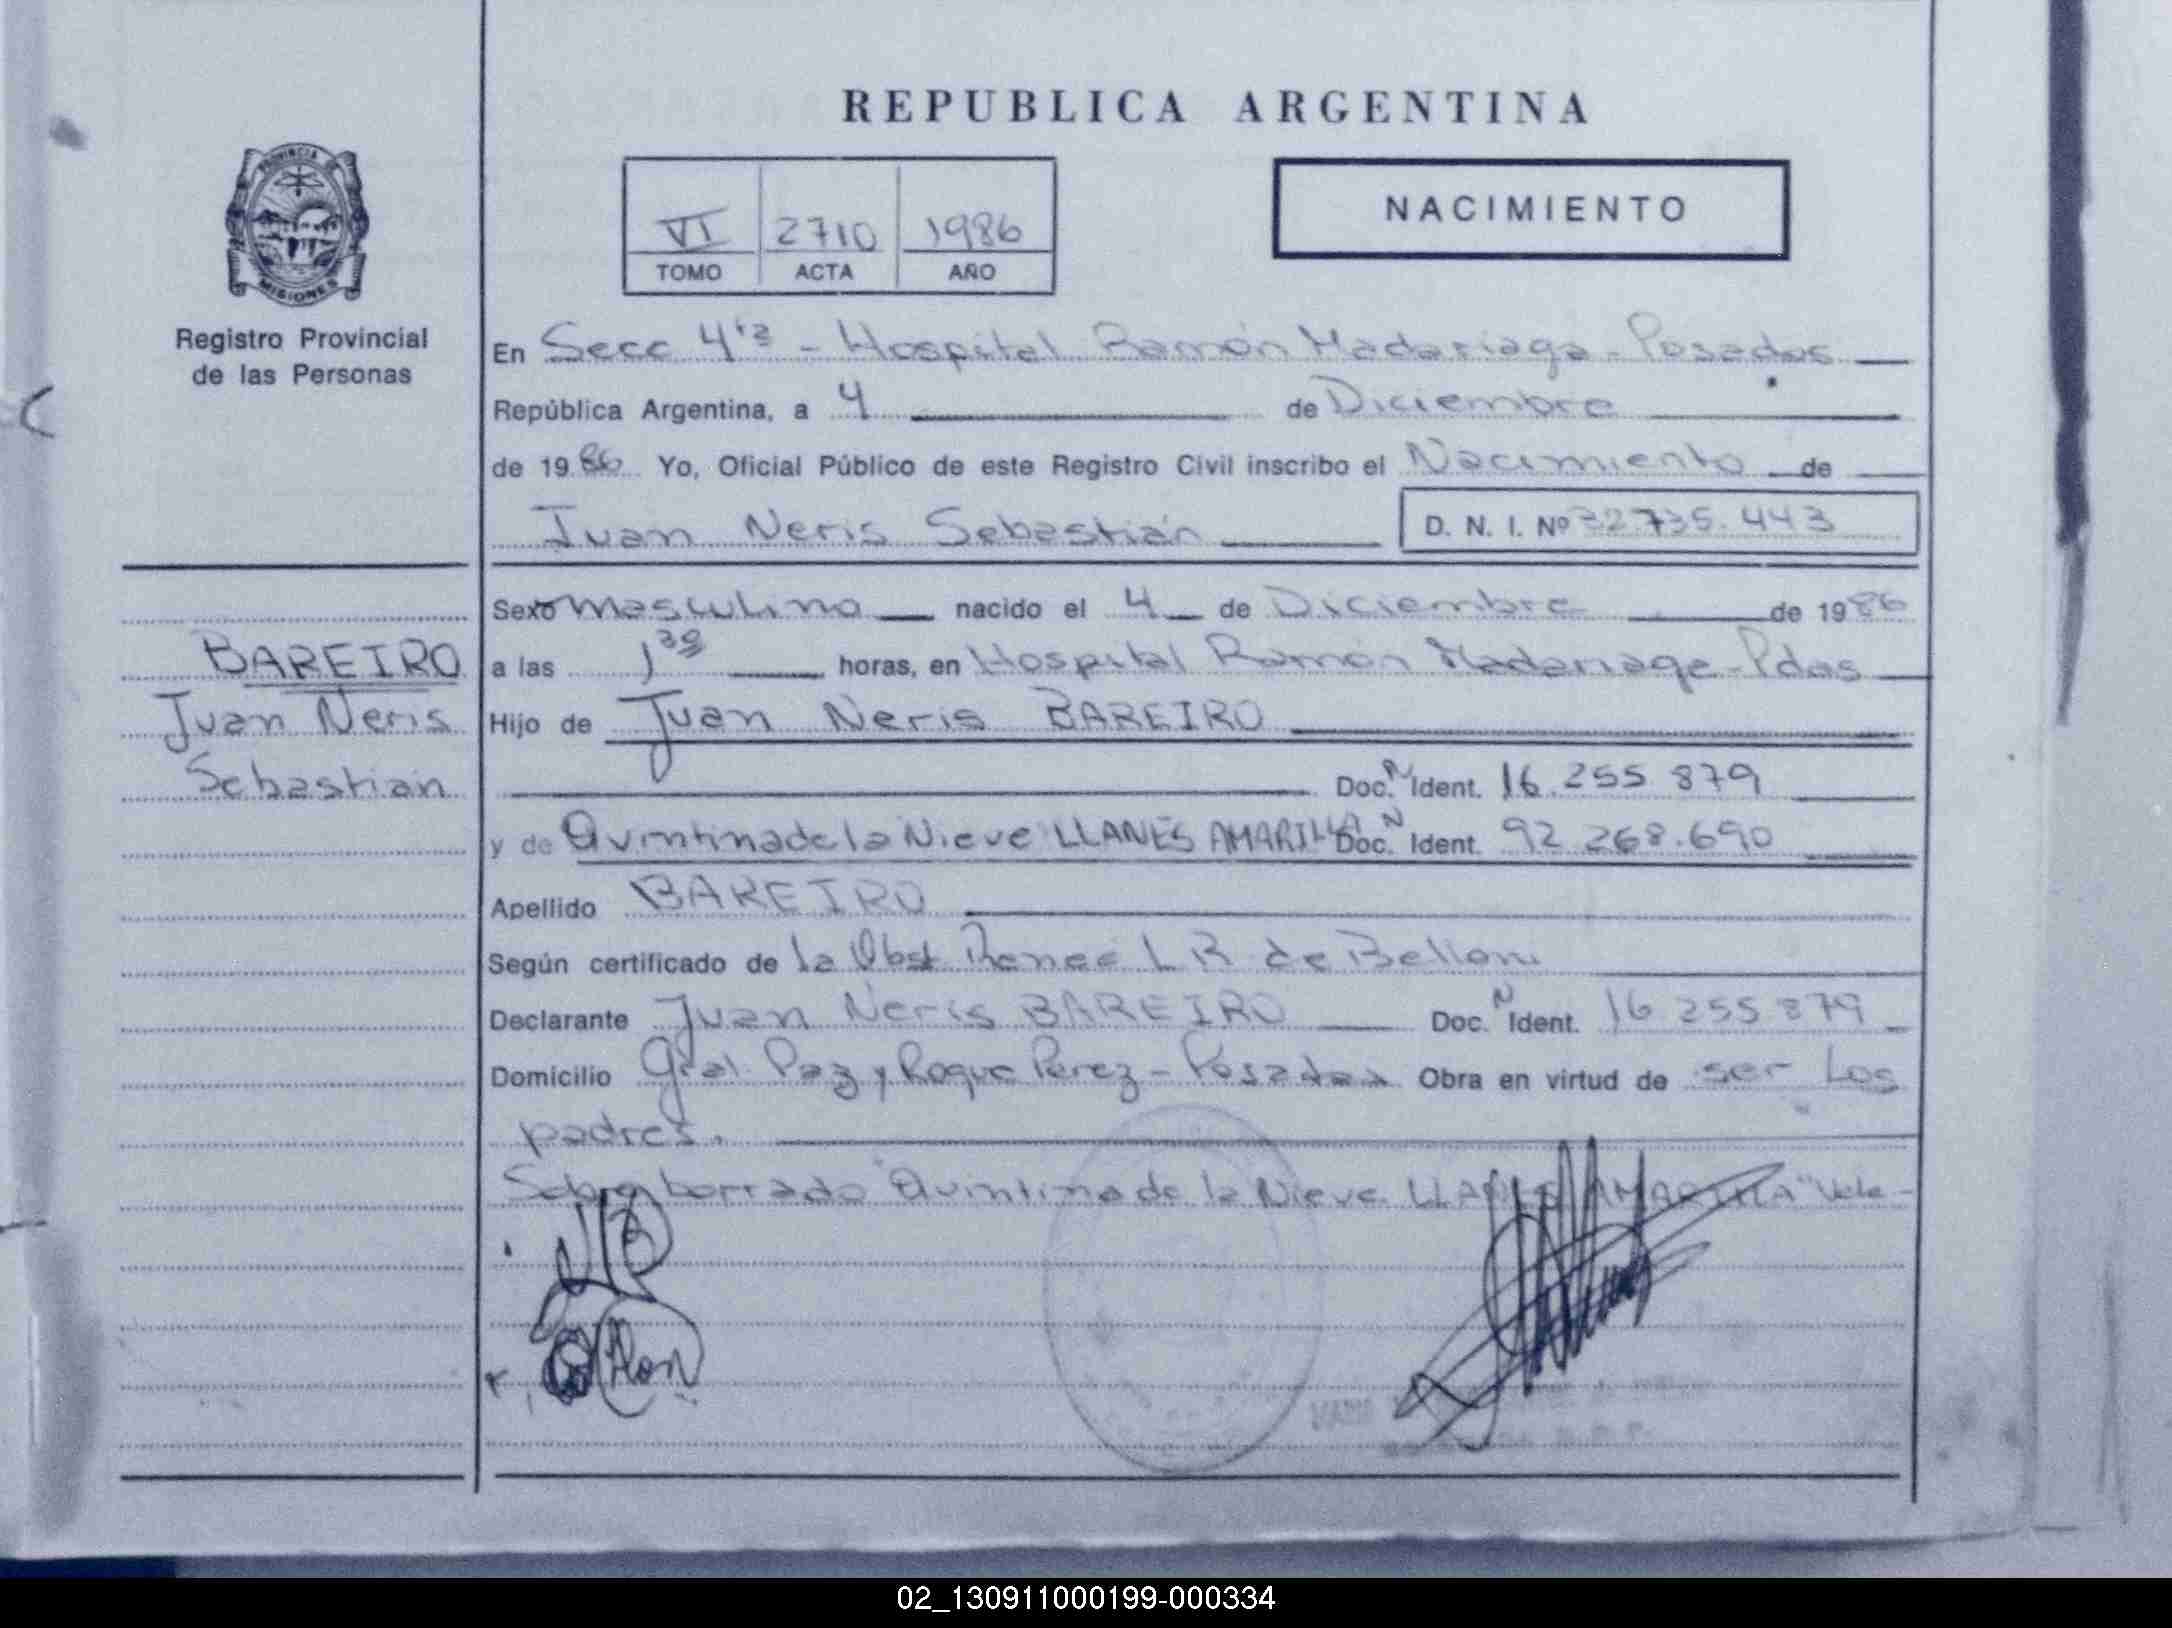 REPUBLICA ARGENTINA
PROVINCIA DE
MISIONES
Registro Provincial
de las Personas
VI 2710 1986
TOMO ACTA AÑO
NACIMIENTO
En Secc 4ta - Hospital Ramón Madariaga - Posadas
República Argentina, a 4 de Diciembre
de 1986 Yo, Oficial Público de este Registro Civil inscribo el Nacimiento de
Juan Neris Sebastián
D. N. I. Nº 32.735.443
BAREIRO
Juan Neris
Sebastián
Sexo masculino nacido el 4 de Diciembre de 1986
a las 1 30 horas, en Hospital Ramón Madariaga - Pdas
Hijo de Juan Neris BAREIRO
Doc. N Ident. 16.255 879
y de Quintina de la Nieve LLANES AMARILLA Doc. N Ident. 92 268.690
Apellido BAREIRO
Según certificado de la Obst Renee L R de Belloni
Declarante Juan Neris BAREIRO Doc. N Ident. 16 255 879
Domicilio Gral. Paz y Roque Perez - Posadas Obra en virtud de ser Los
padres.
Sobre borrado "Quintina de la Nieve LLANES AMARILLA" Vale -
02_130911000199-000334